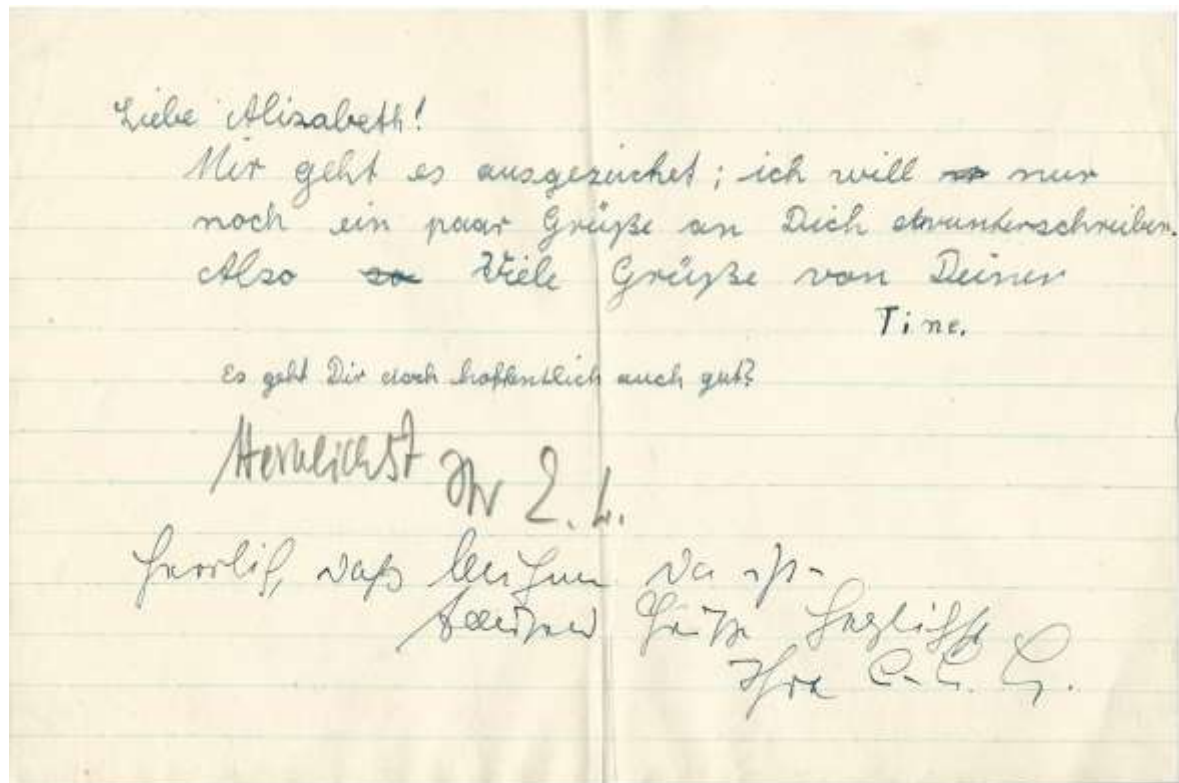 Liebe Alisabeth!
Mir geht es ausgezeichet; ich will nur
noch ein paar Grüße an Dich drunterschreiben.
Also Viele Grüße von Deiner
Tine.
Es geht Dir doch hoffentlich auch gut?
Herzlichst Ihr E. L.
Herrlich, daß da ist
Grüße herzlichst
Ihre